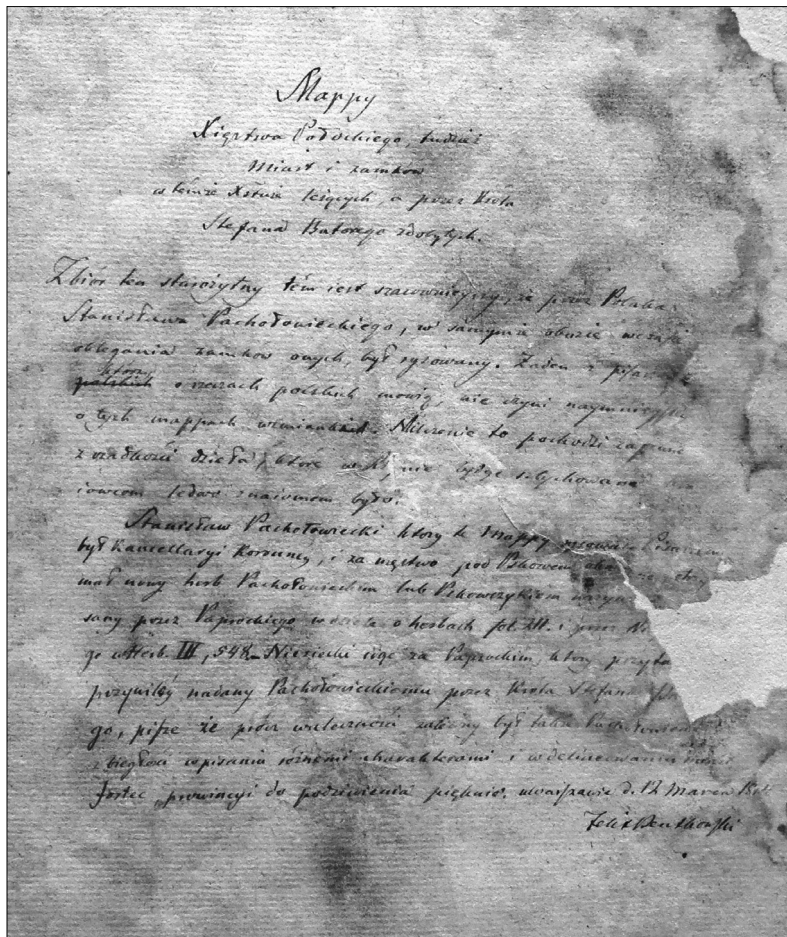 Mappy
Xięztwa Połockiego, tudzież
Miast i zamków
w témże Xstwie leżących, a przez Króla
Stefana Batorego zdobytych.
Zbiór ten starożytny tém jest szacownieyszy, że przez Polaka
Stanisława Pachołowieckiego, w samymże obozie wczasie
oblegania zamków onych, był rysowany. Żaden z pisarzy
którzy
polskich o rzeczach polskich mówią, nie czyni naymnieyszéy
o tych mappach wzmianki. Milczenie to pochodzi zapewne
z rzadkości dzieła, które nie będąc sztychowane
ledwo znaiomem było.
Stanisław Pachołowiecki który te Mappy rysował Pisarzem
był Kancellaryi Koronney, i za męstwo pod Pskowem
mał nowy herb Pachołowieckim lub Pskowczykiem
sany przez Paprockiego w dziele o herbach fol. i przez
go w Herb. III, 548. Niesiecki idąc za Paprockim, który przyta
przywiléy nadany Pachołowieckiemu przez Króla Stefana
go, pisze że prócz waleczności zalecony był także Pachołowiecki
z biegłości w pisaniu różnemi charakterami i w delineowaniu
fortec, prowincyi do podziwienia pięknie. w Warszawie d. 12 Marca
Felix Bentkowski